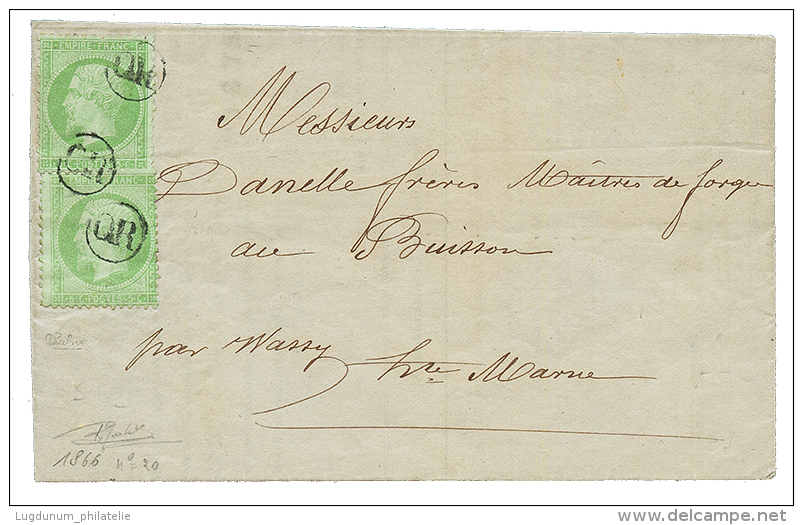 EMPIRE FRANC
OR
5 C POSTES 5 C
OR
EMPIRE FRANC
OR
5 C POSTES 5 C
Messieurs
Danelle frères Maîtres de forge
au Buisson
par Wassy
hte Marne
1866 nº 20
Lugdunum_philatelie
delcampe.net